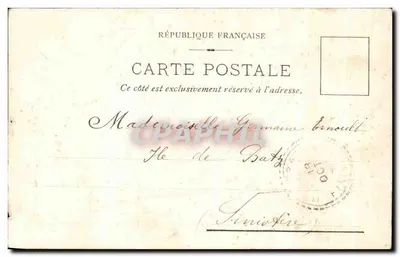 RÉPUBLIQUE FRANÇAISE
CARTE POSTALE
Ce côté est exclusivement réservé à l'adresse.
Mademoiselle Germaine Ernoult
Ile de Batz
Finistère